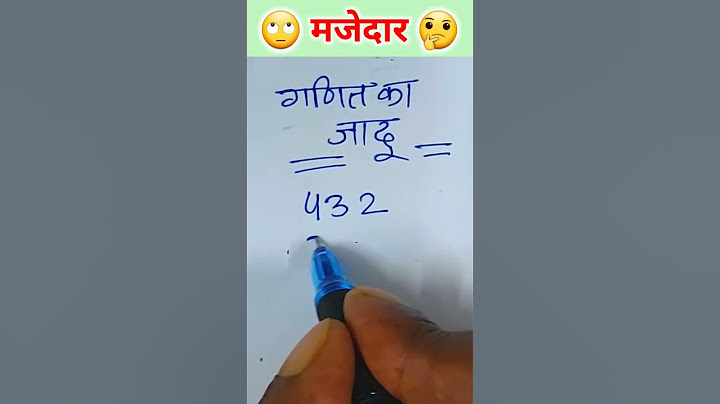 मजेदार
गणित का
जादू
432